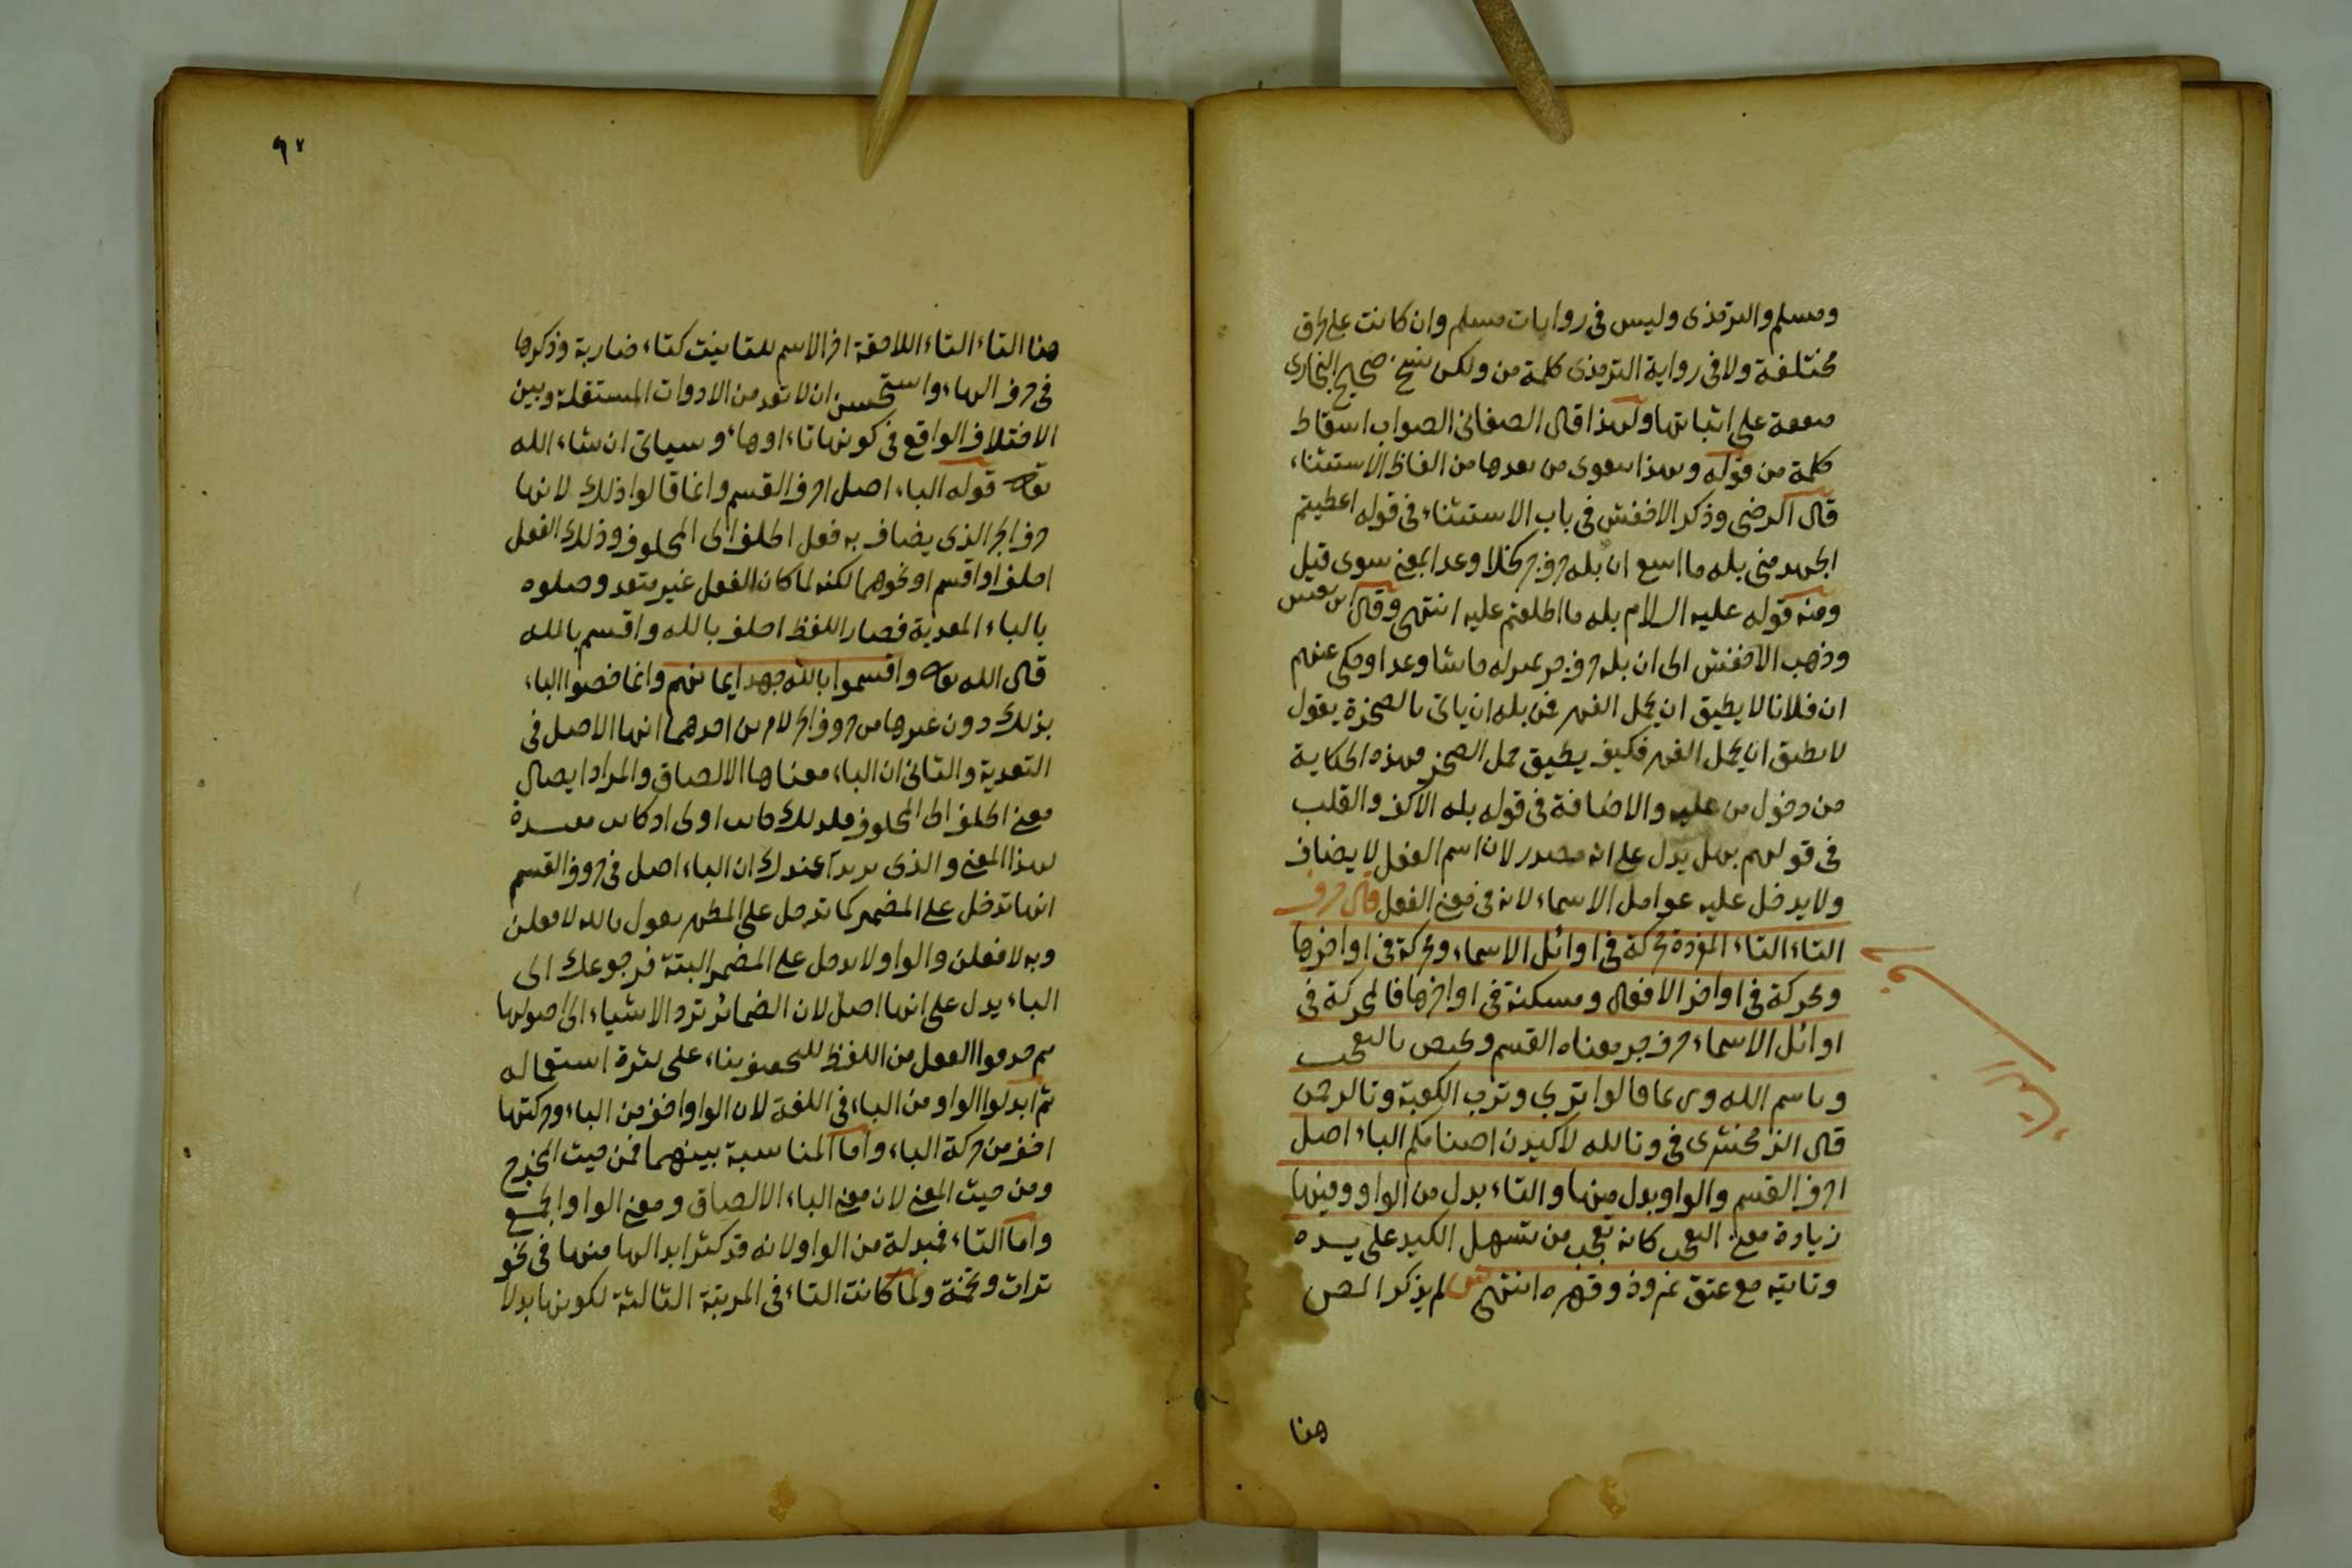 ومسلم والترمذى وليس فى روايات مسلم وان كانت على طرق
مختلفة ولا فى رواية الترمذى كلمة من ولكن نسخ صحيح البخارى
متفقة على اثباتها ولهذا قال الصغانى الصواب اسقاط
كلمة من قوله وبهذا يتقوى من يعدها من الفاظ الاستثناء
قال الرضى وذكر الاخفش فى باب الاستثناء فى قوله اعطيتم
الجهد منى بله ما اسع ان بله حرف جر كخلا وعدا بمعنى سوى قيل
ومنه قوله عليه السلام بله ما اطلعتم عليه انتهى وقال ابن يعيش
وذهب الاخفش الى ان بله حرف جر بمنزله حاشا وعدا وحكى عنهم
ان فلانا لا يطيق ان يحمل الفهر فمن بله ان ياتى بالصخرة يقول
لا يطيق ان يحمل الفهر فكيف يطيق حمل الصخر وهذه الحكاية
من دخول من عليه والاضافة فى قوله بله الاكف والقلب
فى قولهم بهل يدل على انه مصدر لان اسم الفعل لا يضاف
ولا يدخل عليه عوامل الاسماء لانه فى معنى الفعل قال حرف
التاء التاء المفردة محركة فى اوائل الاسماء ومحركة فى اواخرها
ومحركة فى اواخر الافعال ومسكنة فى اواخرها فالمحركة فى
اوائل الاسماء حرف جر معناه القسم وتختص بالتعجب
وباسم الله وربما قالوا تربى وترب الكعبة وتالرحمن
قال الزمخشرى فى وتالله لاكيدن اصنامكم الباء اصل
احرف القسم والواو بدل منها والتاء بدل من الواو وفيها
زيادة معنى التعجب كانه تعجب من تسهل الكيد على يده
وتاتيه مع عتو نمروذ وقهره انتهى ش لم يذكر المص
هنا
٩٢
هنا التاء التاء اللاحقة اخر الاسم للتانيث كتاء ضاربة وذكرها
فى حرف الهاء واستحسن ان لا تعد من الادوات المستقلة وبين
الاختلاف الواقع فى كونها تاء اوهاء وسياتى ان شاء الله
تعالى قوله الباء اصل احرف القسم وانما قالوا ذلك لانها
حرف الجر الذى يضاف به فعل الحلف الى المحلوف وذلك الفعل
احلف او اقسم او نحوهما لكنه لما كان الفعل غير متعد وصلوه
بالباء المعدية فصار اللفظ احلف بالله واقسم بالله
قال الله تعالى واقسموا بالله جهد ايمانهم وانما خصوا الباء
بذلك دون غيرها من حروف الجر لامرين احدهما انها الاصل فى
التعدية والثانى ان الباء معناها الالصاق والمراد ايصال
معنى الحلف الى المحلوف فلذلك كانت اولى اذ كانت مفيدة
لهذا المعنى والذى يريد عندك ان الباء اصل فى حروف القسم
انها تدخل على المضمر كما تدخل على المظهر يقول بالله لافعلن
وبه لافعلن والواو لا تدخل على المضمر البتة فرجوعك الى
الباء يدل على انها اصل لان الضمائر ترد الاشياء الى اصولها
ثم حذفوا الفعل من اللفظ للتخفيف بناء على كثرة استعماله
ثم ابدلوا الواو من الباء فى اللغة لان الواو اخف من الباء وحركتها
اخف من حركة الباء واما المناسبة بينهما فمن حيث المخرج
ومن حيث المعنى لان معنى الباء الالصاق ومعنى الواو الجمع
واما التاء فمبدلة من الواو لانه قد كثر ابدالها منها فى نحو
تراث وتخمة ولما كانت التاء فى المرتبة الثالثة لكونها بدلا